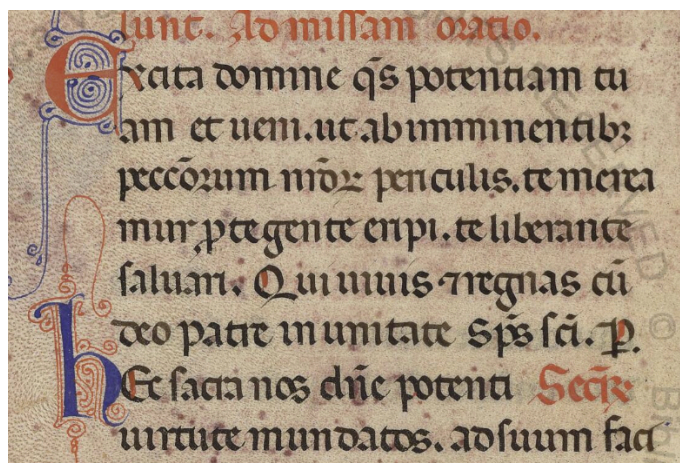 sunt. Ad missam oratio.
Excita domine q̃s potentiam tu
am et ueni. ut ab imminentibꝫ
peccõrum nr̃oꝝ periculis. te merea
mur ꝓtegente eripi. te liberante
saluari. Qui uiuis ⁊ regnas cũ
deo patre in unitate sp̃s sc̃i. P.
HEc sacra nos dñe potenti Secr̃e
uirtute mundatos. ad suum faci